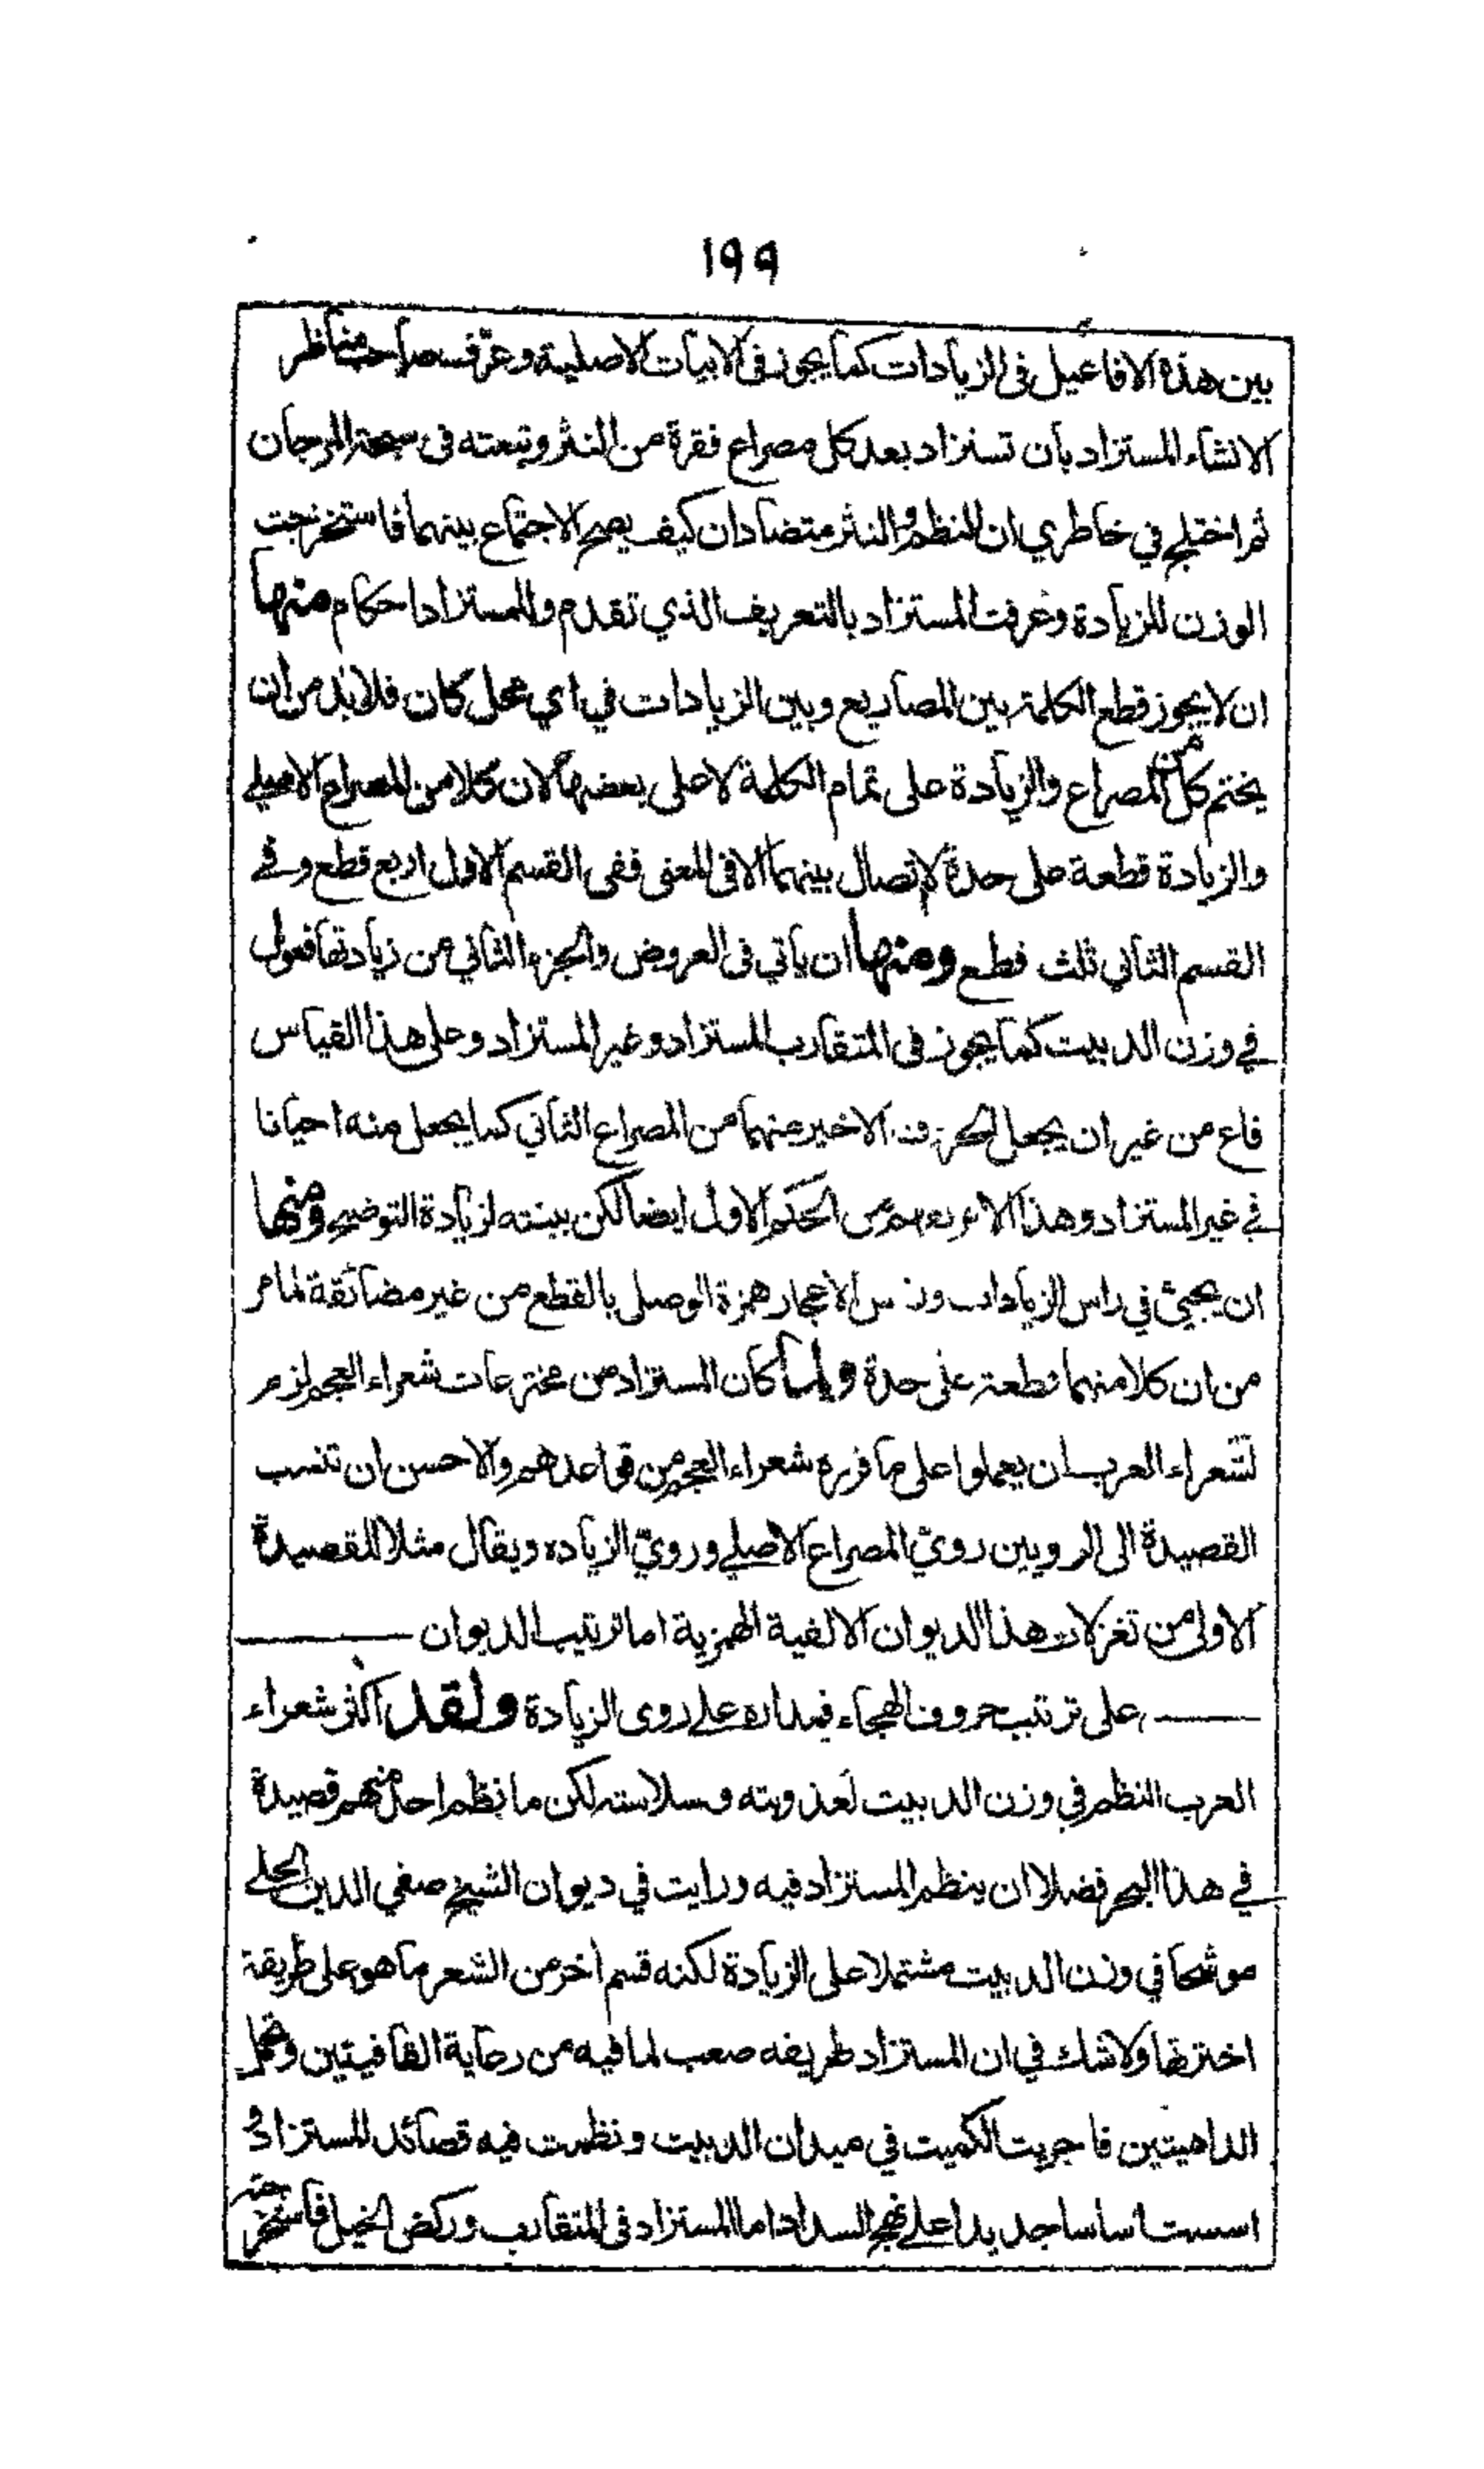 ١٩٩
بين هذه الافاعيل فى الزيادات كما يجوز فى الابيات الاصلية وعرّف صاحب مناظر
الانشاء المستزاد بان تستزاد بعد كل مصراع فقرة من النثر وتبعته فى سبحة المرجان
ثم اختلج في خاطري ان النظم والنثر متضادان كيف يصح الاجتماع بينهما فاستخرجت
الوزن للزيادة وعرفت المستزاد بالتعريف الذي تقدم وللمستزاد احكام منها
ان لا يجوز قطع الكلمة بين المصاريع وبين الزيادات في اي محل كان فلابد من ان
يختم كل من المصراع والزيادة على تمام الكلمة لا على بعضها لان كلا من المصراع الاصلي
والزيادة قطعة على حدة لا اتصال بينهما الا فى المعنى ففى القسم الاول اربع قطع وفي
القسم الثاني ثلث قطع ومنها ان ياتي فى العروض والجزء الثاني من زيادتها فعول
في وزن الدبيت كما يجوز فى المتقارب المستزاد وغير المستزاد وعلى هذا القياس
فاع من غير ان يجعل الحرف الاخير منهما من المصراع الثاني كما يجعل منه احيانا
في غير المستزاد وهذا الامر من الحكم الاول ايضا لكن بينته لزيادة التوضيح ومنها
ان يجيئ في راس الزيادات وراس الاعجاز همزة الوصل بالقطع من غير مضائقة لما مر
من ان كلا منهما قطعة على حدة ولما كان المستزاد من مخترعات شعراء العجم لزم
لشعراء العرب ان يعملوا على ما قرره شعراء العجم من قواعدهم والاحسن ان تنسب
القصيدة الى الرويين رويّ المصراع الاصلي ورويّ الزياده ويقال مثلا للقصيدة
الاولى من تغزلات هذا الديوان الالفية الهمزية اما ترتيب الديوان
على ترتيب حروف الهجاء فمداره على روى الزيادة ولقد اكثر شعراء
العرب النظم في وزن الدبيت لعذوبته وسلاسته لكن ما نظم احد منهم قصيدة
في هذا البحر فضلا ان ينظم المستزاد فيه ورايت في ديوان الشيخ صفي الدين الحلي
موشحا في وزن الدبيت مشتملا على الزيادة لكنه قسم اخر من الشعر ما هو على طريقة
اخترتها ولا شك في ان المستزاد طريقه صعب لما فيه من رعاية القافيتين وتحمل
الداهيتين فاجريت الكميت في ميدان الدبيت ونظمت فيه قصائد المستزاد و
اسست اساسا جديدا على نهج السداد اما المستزاد فى المتقارب وركض الخيل فاستخرجته